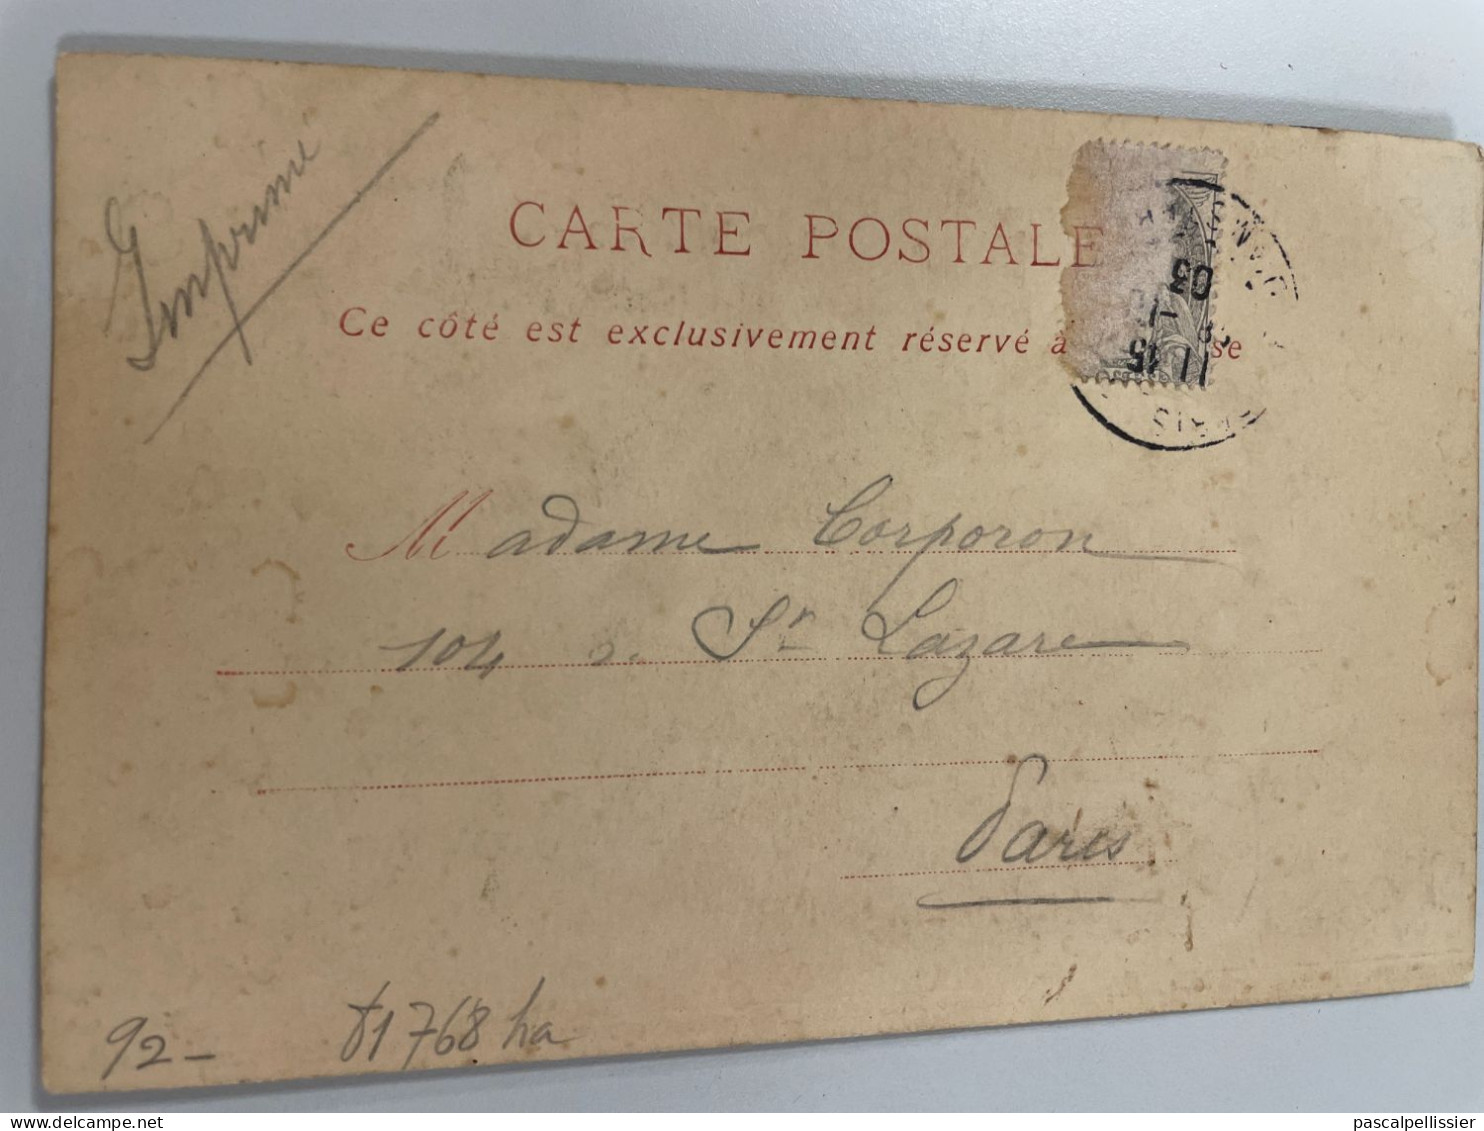 Imprimé
CARTE POSTALE
Ce côté est exclusivement réservé à se
Madame Corporon
104 r. St Lazare
Paris
92 –
768 ha
03
15
pascalpellissier